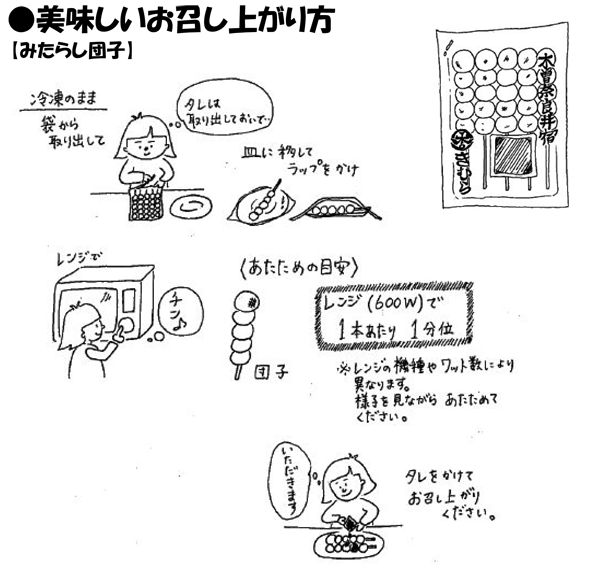 ●美味しいお召し上がり方
【みたらし団子】
冷凍のまま
袋から
取り出して
タレは
取り出しておいて…
皿に移して
ラップをかけ
木曽奈良井宿
レンジで
チン♪
〈あたための目安〉
団子
レンジ(600W)で
1本あたり 1分位
※レンジの機種やワット数により
異なります。
様子を見ながら あたためて
ください。
いただきます
タレをかけて
お召し上がり
ください。